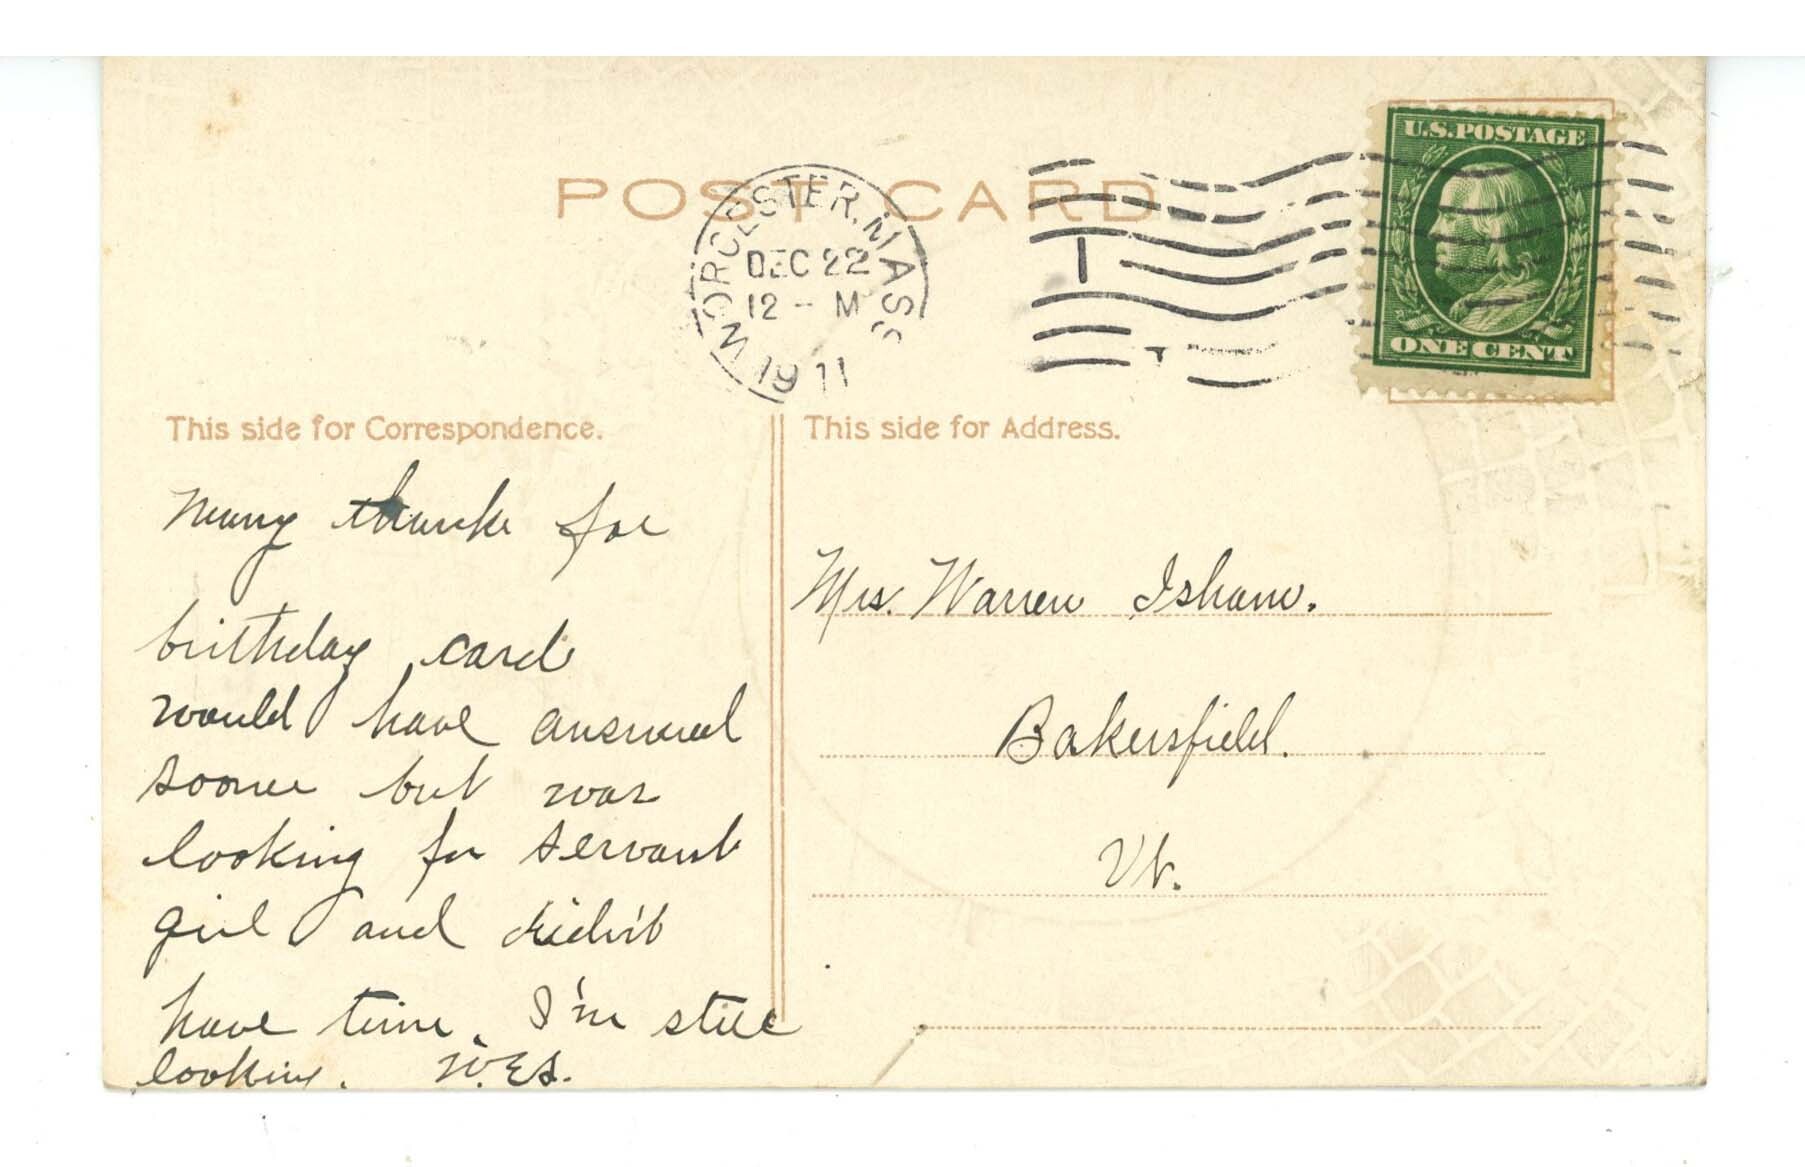 POST CARD
WORCESTER, MASS
DEC 22
12 - M
1911
U.S.POSTAGE
ONE CENT
This side for Correspondence.
Many thanks for
birthday card
would have answered
sooner but was
looking for servant
girl and didn't
have time. I'm still
looking. W.E.S.
This side for Address.
Mrs. Warren Isham.
Bakersfield.
Vt.